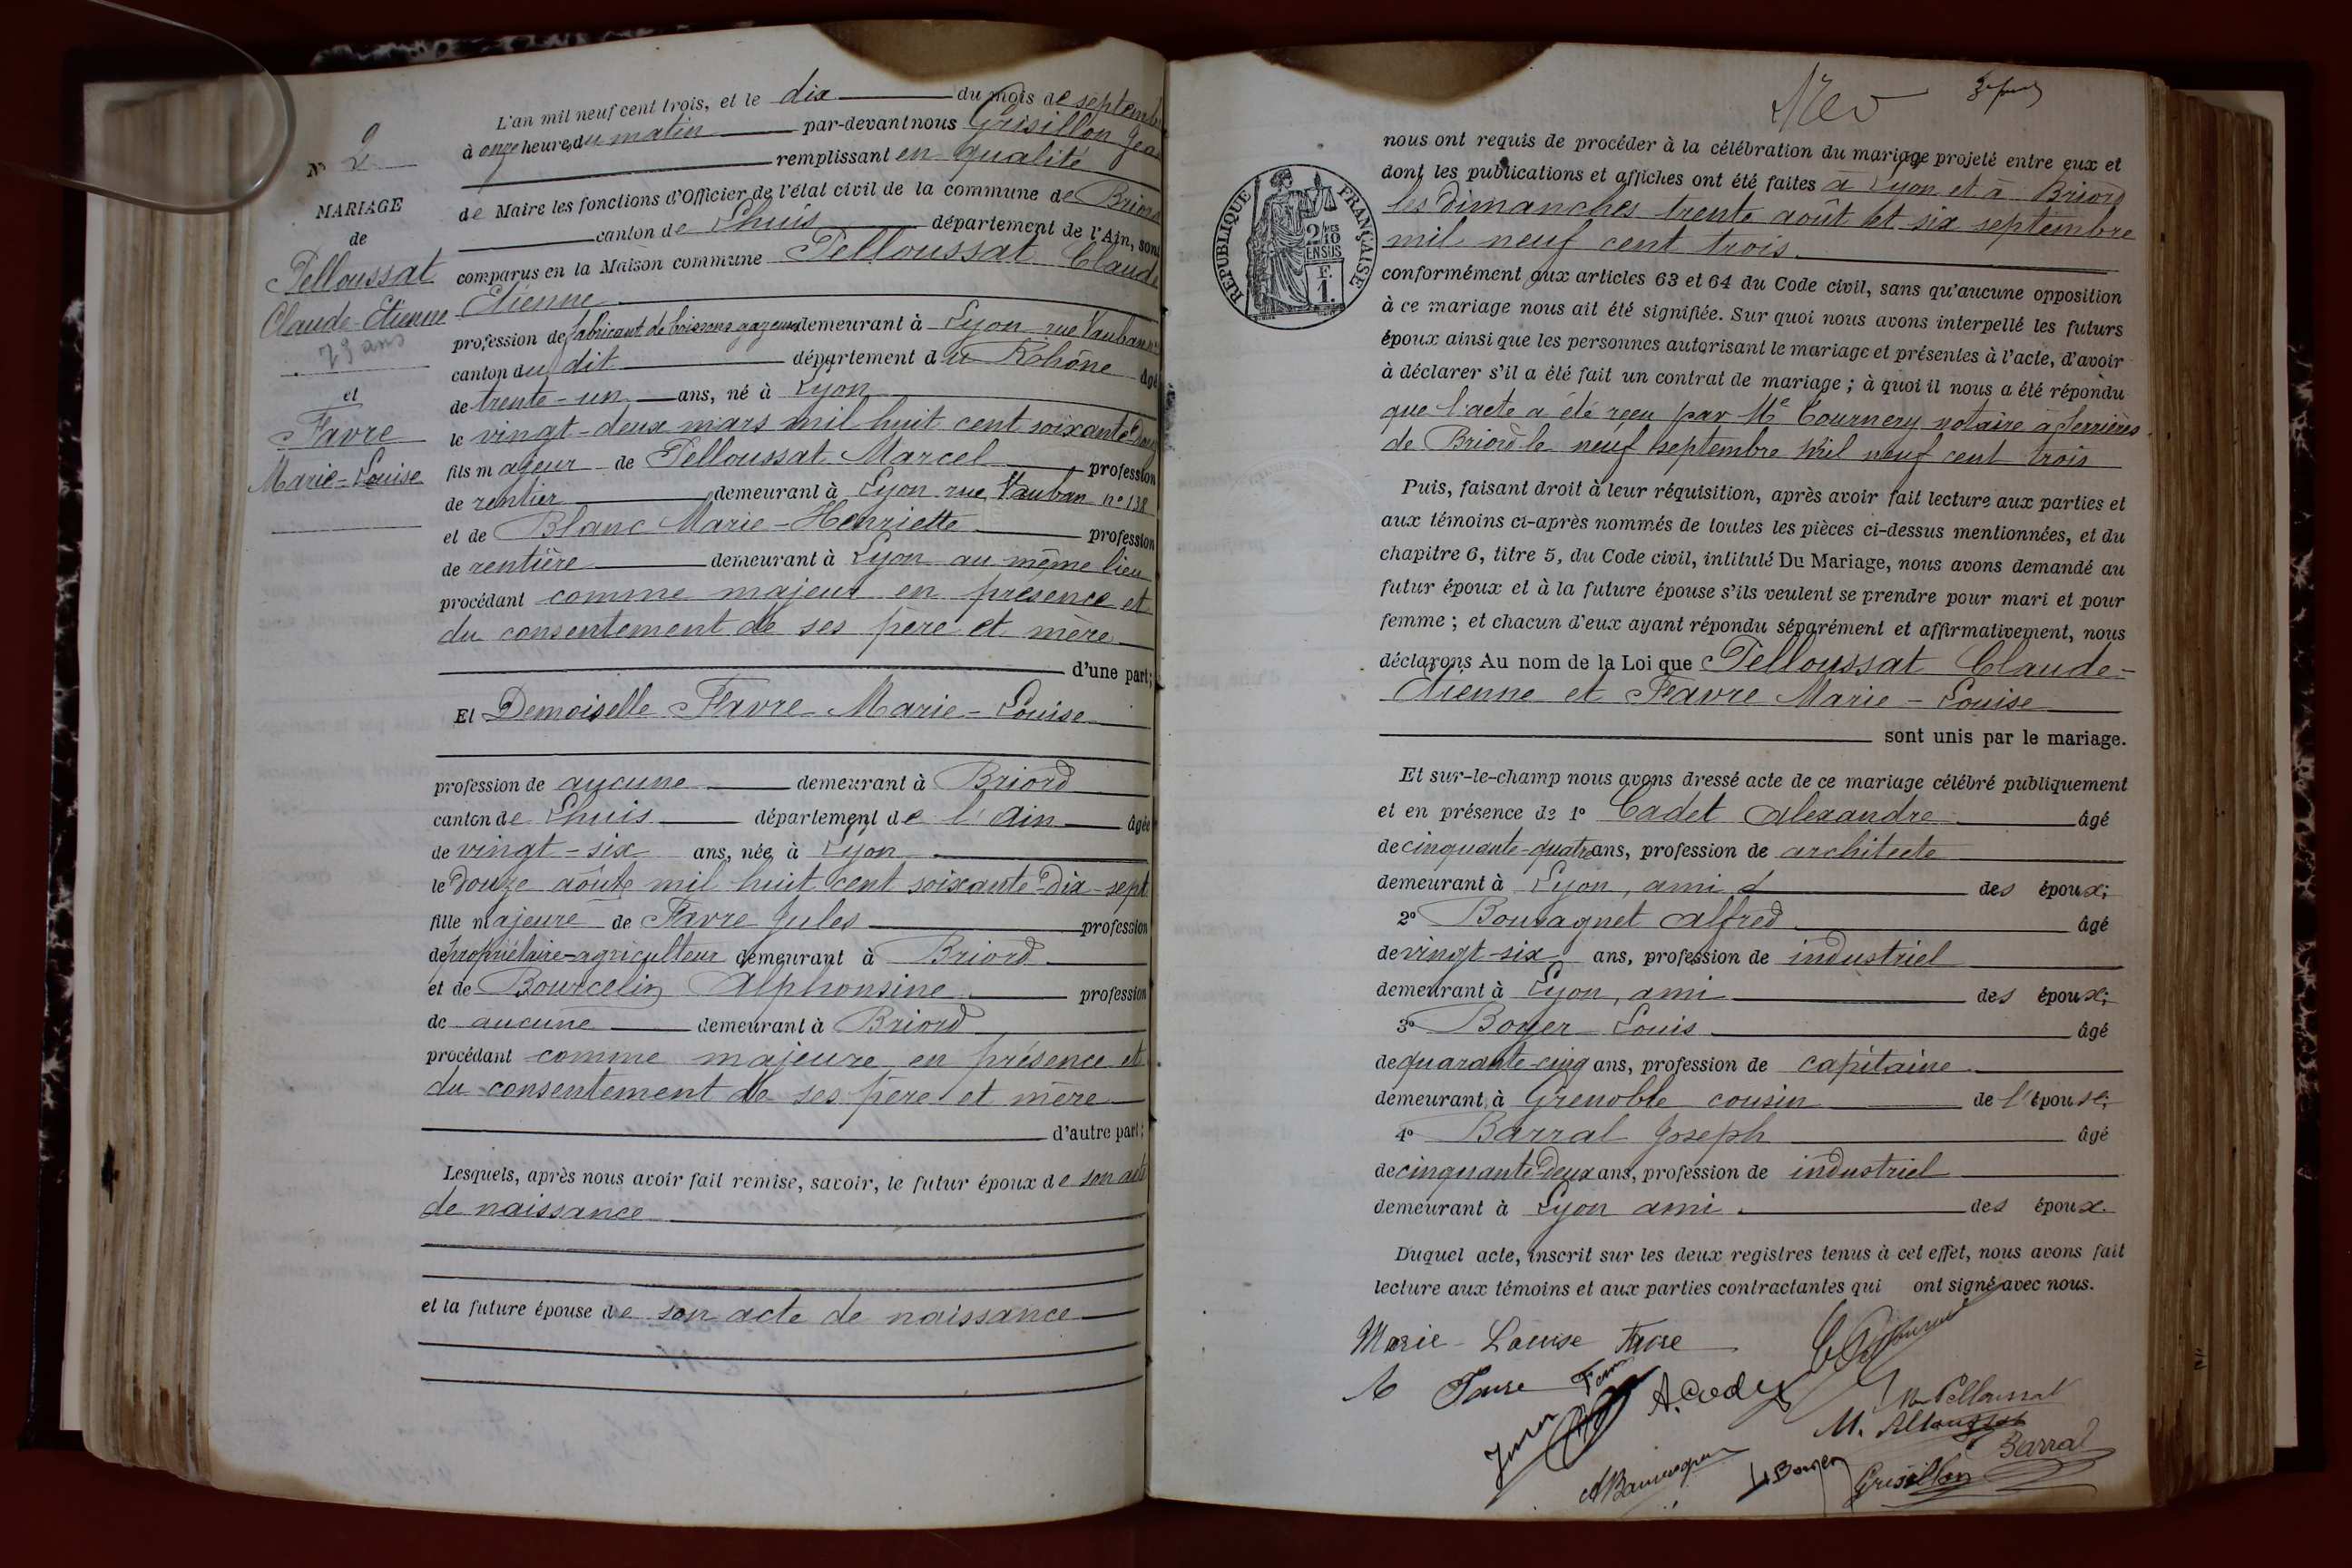 N° 2
MARIAGE
de
Pelloussat
Claude-Etienne
29 ans
et
Favre
Marie-Louise
L'an mil neuf cent trois, et le dix du mois de septembre
à onze heures du matin par-devant nous Grisillon Jean
remplissant en qualité
de Maire les fonctions d'Officier de l'état civil de la commune de Briord
canton de Lhuis département de l'Ain, sont
comparus en la Maison commune Pelloussat Claude
Etienne
profession de fabricant de boissons gazeuses demeurant à Lyon rue Vauban
canton du dit département du Rhône âgé
de trente-un ans, né à Lyon
le vingt-deux mars mil huit cent soixante-douze
fils majeur de Pelloussat Marcel profession
de rentier demeurant à Lyon rue Vauban n° 138
et de Blanc Marie-Henriette profession
de rentière demeurant à Lyon au même lieu
procédant comme majeur en présence et
du consentement de ses père et mère
d'une part;
Et Demoiselle Favre Marie-Louise
profession de aucune demeurant à Briord
canton de Lhuis département de l'Ain âgée
de vingt-six ans, née à Lyon
le douze août mil huit cent soixante-dix-sept
fille majeure de Favre Jules profession
de propriétaire-agriculteur demeurant à Briord
et de Bourcelin Alphonsine profession
de aucune demeurant à Briord
procédant comme majeure en présence et
du consentement de ses père et mère
d'autre part;
Lesquels, après nous avoir fait remise, savoir, le futur époux de son acte
de naissance
et la future épouse de son acte de naissance
RÉPUBLIQUE FRANÇAISE
2/10
EN SUS
F.
1.
nous ont requis de procéder à la célébration du mariage projeté entre eux et
dont les publications et affiches ont été faites à Lyon et à Briord
les dimanches trente août et six septembre
mil neuf cent trois.
conformément aux articles 63 et 64 du Code civil, sans qu'aucune opposition
à ce mariage nous ait été signifiée. Sur quoi nous avons interpellé les futurs
époux ainsi que les personnes autorisant le mariage et présentes à l'acte, d'avoir
à déclarer s'il a été fait un contrat de mariage; à quoi il nous a été répondu
que l'acte a été reçu par Me Cournery notaire à Serrières
de Briord le neuf septembre mil neuf cent trois
Puis, faisant droit à leur réquisition, après avoir fait lecture aux parties et
aux témoins ci-après nommés de toutes les pièces ci-dessus mentionnées, et du
chapitre 6, titre 5, du Code civil, intitulé Du Mariage, nous avons demandé au
futur époux et à la future épouse s'ils veulent se prendre pour mari et pour
femme; et chacun d'eux ayant répondu séparément et affirmativement, nous
déclarons Au nom de la Loi que Pelloussat Claude-
Etienne et Favre Marie-Louise
sont unis par le mariage.
Et sur-le-champ nous avons dressé acte de ce mariage célébré publiquement
et en présence de 1° Cadet Alexandre âgé
de cinquante-quatre ans, profession de architecte
demeurant à Lyon, ami des époux;
2° Bousagnet Alfred âgé
de vingt-six ans, profession de industriel
demeurant à Lyon, ami des époux;
3° Boyer Louis âgé
de quarante-cinq ans, profession de capitaine
demeurant à Grenoble cousin de l'épouse;
4° Barral Joseph âgé
de cinquante-deux ans, profession de industriel
demeurant à Lyon ami des époux.
Duquel acte, inscrit sur les deux registres tenus à cet effet, nous avons fait
lecture aux témoins et aux parties contractantes qui ont signé avec nous.
Marie-Louise Favre
A. Cadet
M. Pelloussat
L. Boyer
Barral
Grisillon